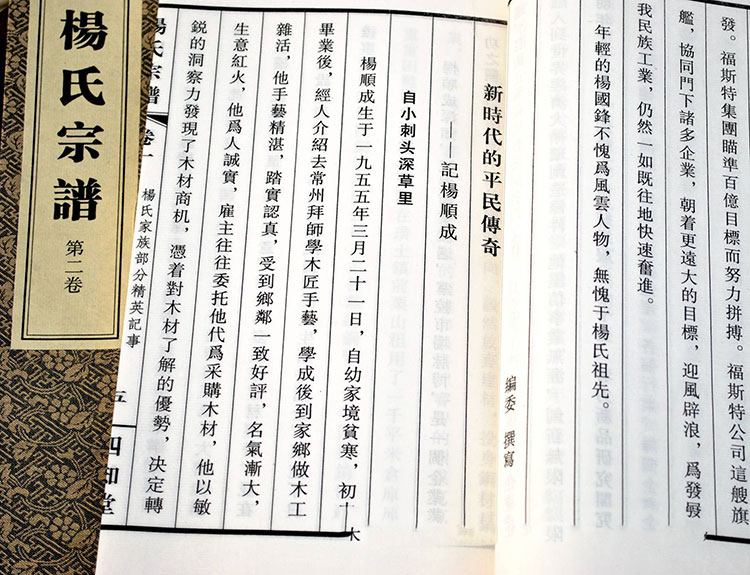 發。福斯特集團瞄準百億目標而努力拼搏。福斯特公司這艘旗
艦，協同門下諸多企業，朝着更遠大的目標，迎風辟浪，爲發
我民族工業，仍然一如既往地快速奮進。
年輕的楊國鋒不愧爲風雲人物，無愧于楊氏祖先。
編委 撰寫
新時代的平民傳奇
——記楊順成
自小刺头深草里
楊順成生于一九五五年三月二十一日，自幼家境貧寒，初
畢業後，經人介紹去常州拜師學木匠手藝，學成後到家鄉做木工
雜活，他手藝精湛，踏實認真，受到鄉鄰一致好評，名氣漸大，
生意紅火，他爲人誠實，雇主往往委托他代爲采購木材，他以敏
鋭的洞察力發現了木材商机，憑着對木材了解的優勢，决定轉
楊氏宗譜
楊氏家族部分精英記事
五
四知堂
楊氏宗譜
第二卷